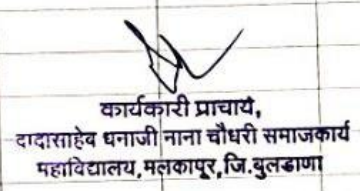 कार्यकारी प्राचार्य,
दादासाहेब धनाजी नाना चौधरी समाजकार्य
महाविद्यालय, मलकापूर, जि.बुलडाणा